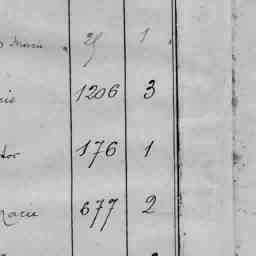 Marie 25 1
1206 3
176 1
Marie 677 2